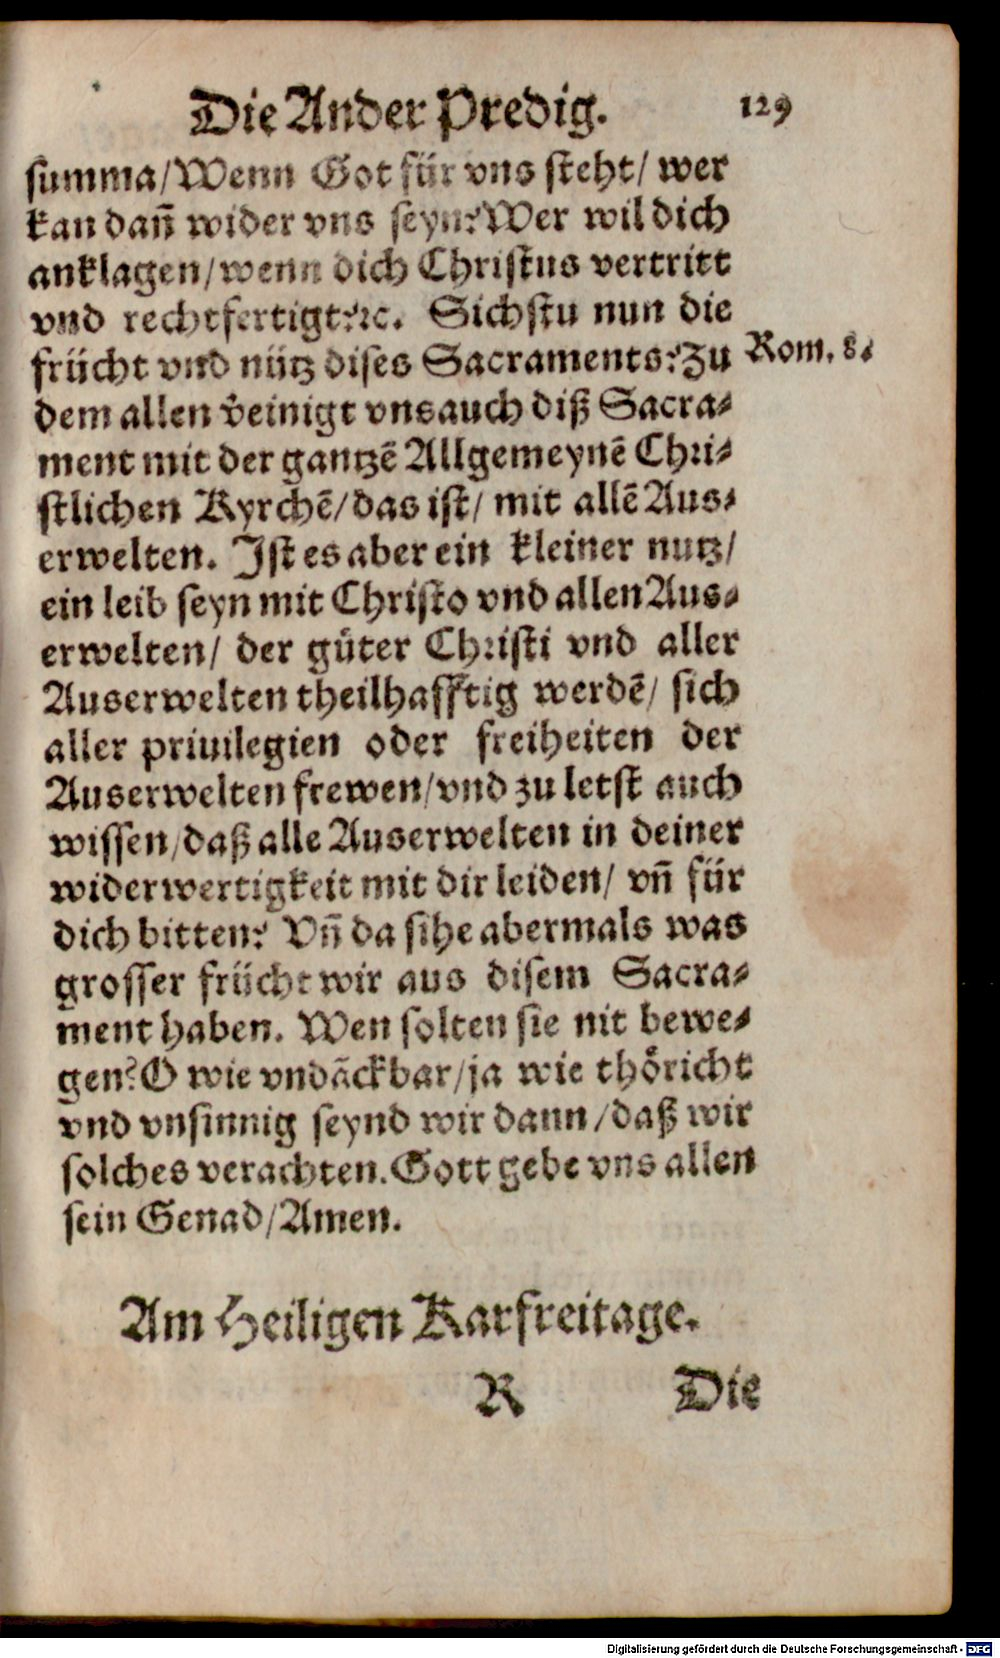 Die Ander Predig. 129
summa/Wenn Got für vns steht/ wer
kan dañ wider vns seyn? Wer wil dich
anklagen/wenn dich Christus vertritt
vnd rechtfertigt? ꝛc. Sichstu nun die
frücht vnd nütz dises Sacraments? Zu Rom. 8.
dem allen v̄einigt vns auch diß Sacra-
ment mit der gantzē Allgemeynē Chri-
stlichen Kyrchē/das ist/ mit allē Aus-
erwelten. Ist es aber ein kleiner nutz/
ein leib seyn mit Christo vnd allen Aus-
erwelten/ der güter Christi vnd aller
Auserwelten theilhafftig werdē/ sich
aller priuilegien oder freiheiten der
Auserwelten frewen/vnd zu letst auch
wissen/daß alle Auserwelten in deiner
widerwertigkeit mit dir leiden/ vñ für
dich bitten? Vñ da sihe abermals was
grosser frücht wir aus disem Sacra-
ment haben. Wen solten sie nit bewe-
gen? O wie vndāckbar/ja wie thöricht
vnd vnsinnig seynd wir dann/daß wir
solches verachten. Gott gebe vns allen
sein Genad/Amen.
Am Heiligen Karfreitage.
R Die
Digitalisierung gefördert durch die Deutsche Forschungsgemeinschaft - DFG